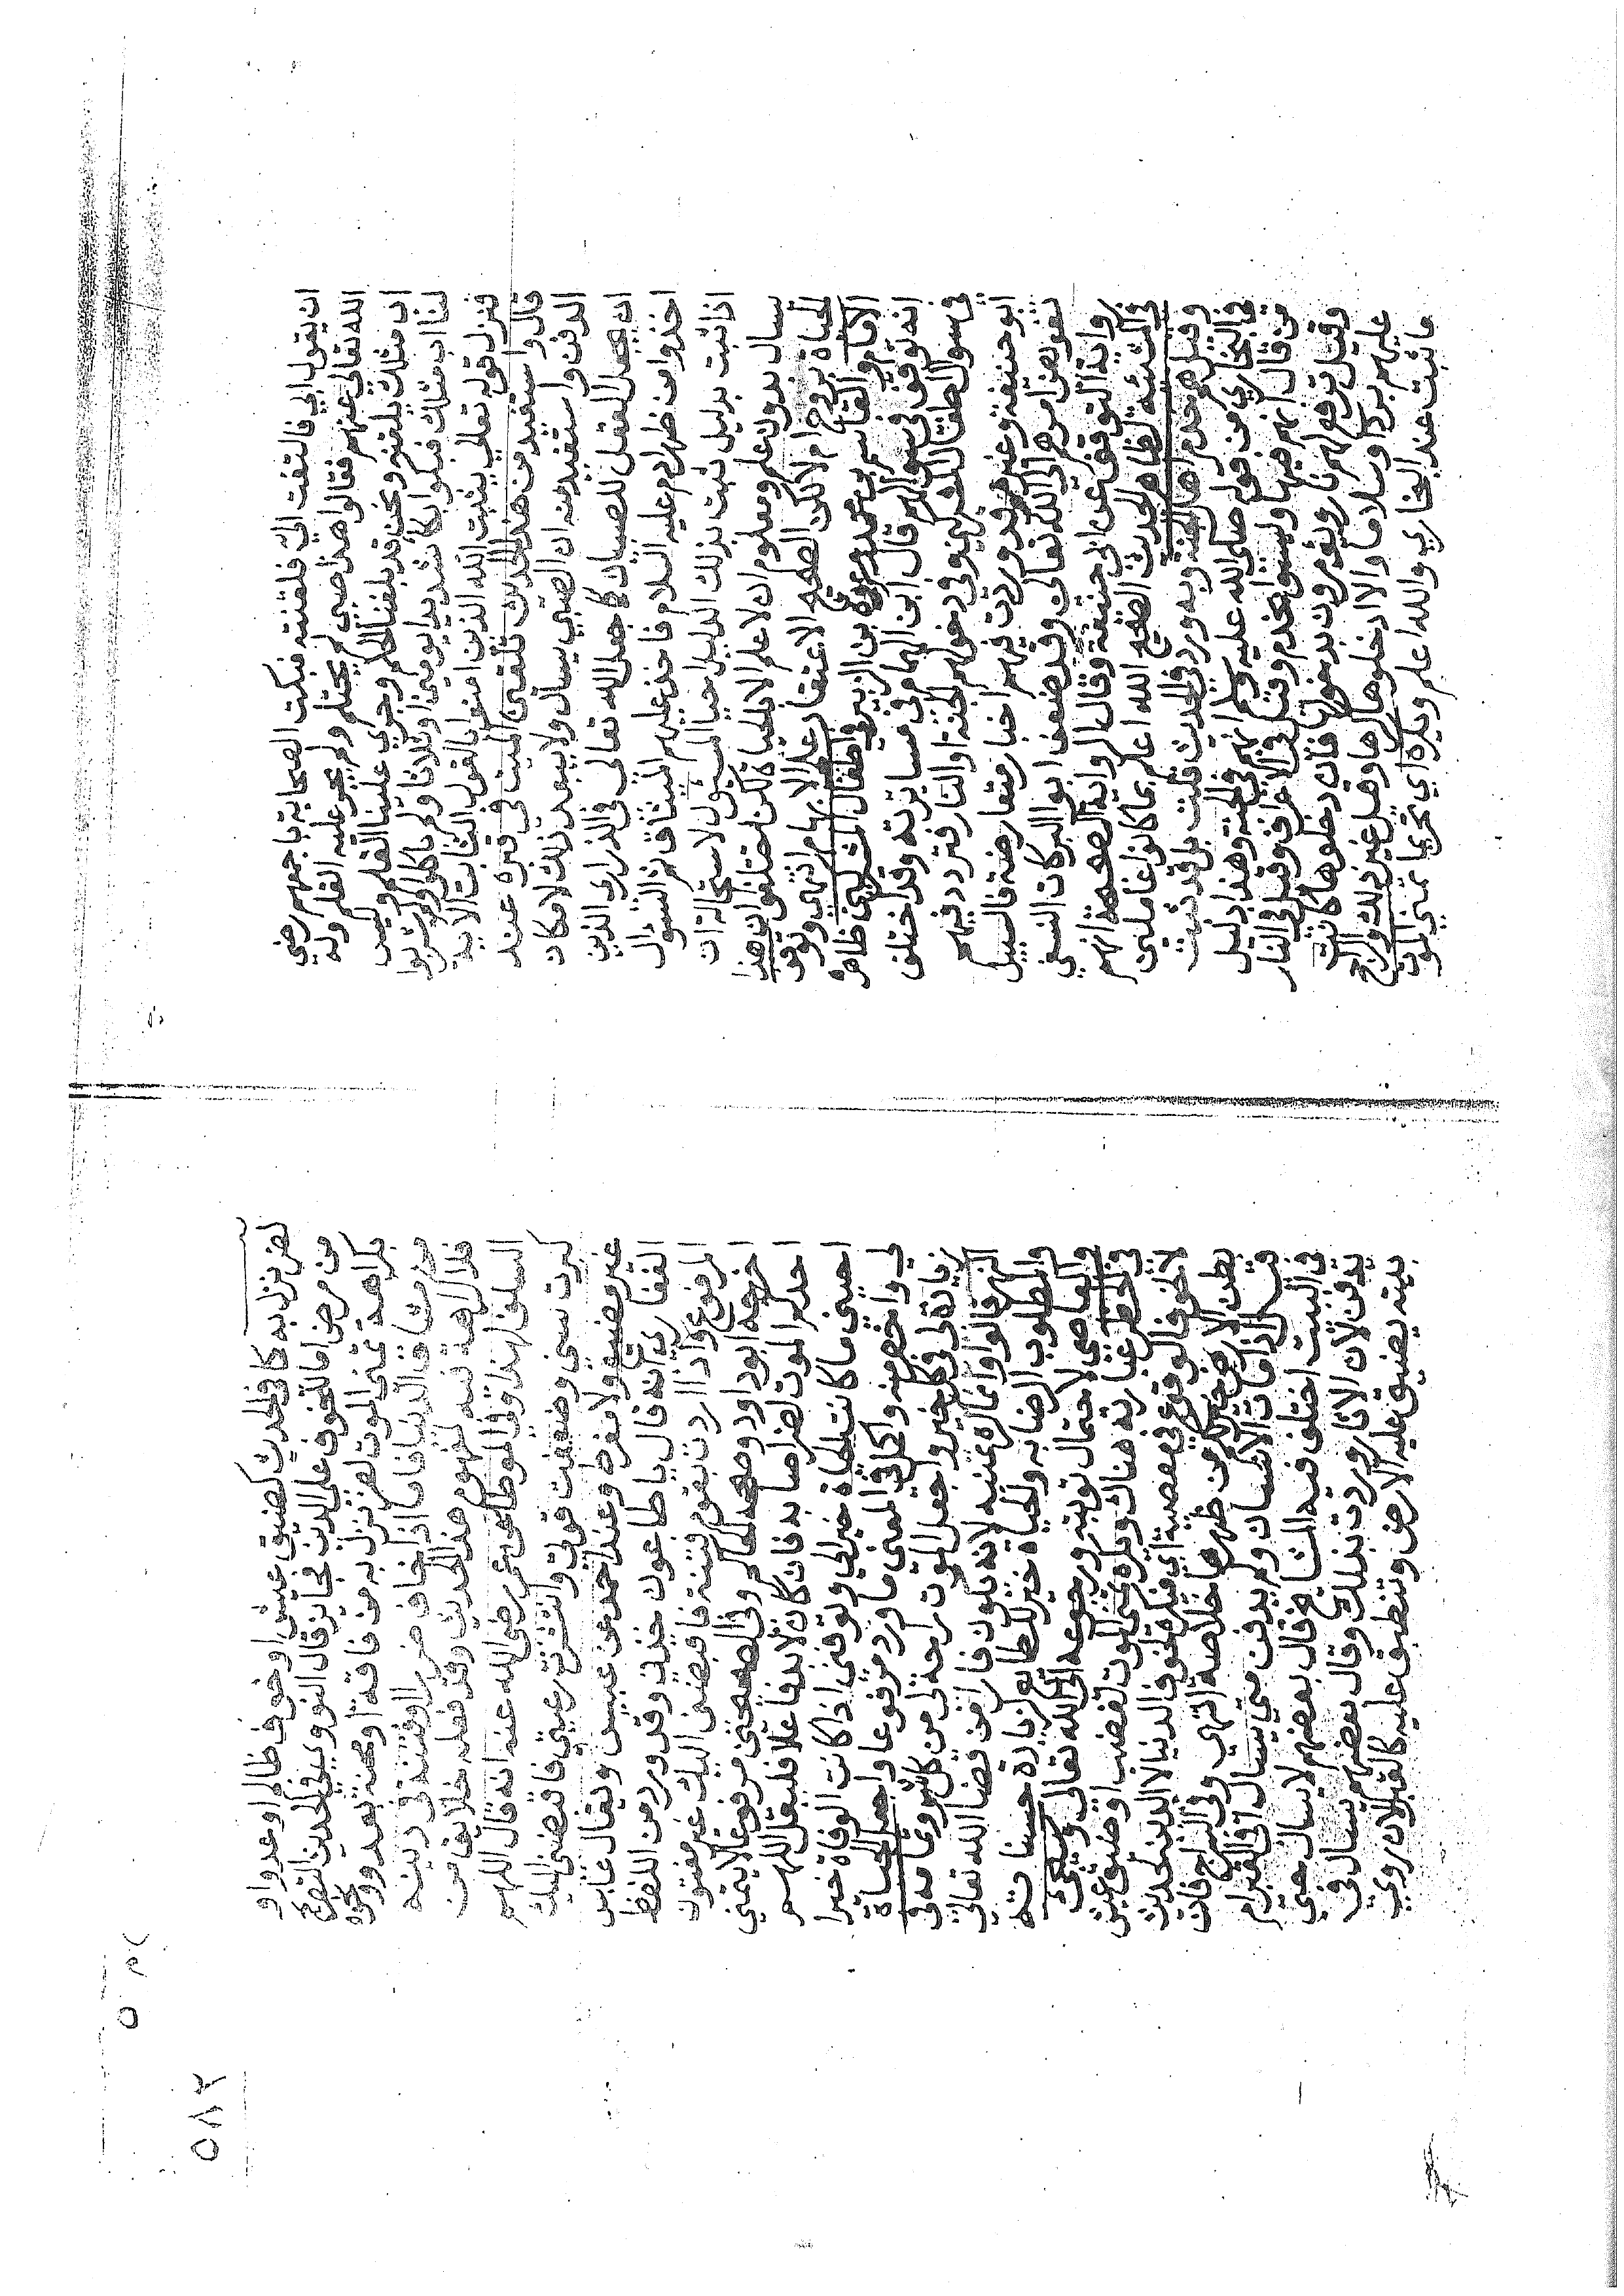 ان يقول ابي فالتفت الي فلقنته فبكت الصحابة باجمعهم رضي
الله تعالى عنهم فقالوا هذا صبي لم يحتلم ولم يجر عليه القلم وله
اب مثلك يلقنه ونحن قد بلغنا الحلم وجري علينا القلم وليس
لنا اب مثلك فبكوا بكاء شديدا يومين او ثلاثا ولم ياكلوا ولم يشربوا
فنزل قوله تعالي يثبت الله الذين امنوا بالقول الثابت الاية
قال واستفيد من هذا الحديث تلقين الميت في قبره عند
الدفن واستفيد منه ان الصبي يسال ولا يبعد ذلك لامكان
ان يجعل العقل للصبيان كما جعل الله تعالى في الذراري الذين
اخذوا من ظهر ادم عليه السلام فاخذ عليهم الميثاق ثم السؤال
اذا ثبت بدليل ثبت بذلك الدليل احيا المسئول لاستحالة ان
يسال بدون علم ومعلوم ان لا علم الا بالحياة لكن اختلفوا ان هذا
الحياة بروح ام لا لكن الصحيح الاعتقاد علي الابهام انتهي وتوقف
الامام والقاسم بن محمد وعروة بن الزبير في اطفال المشركين ظاهر
انه توقف في سوالهم قال ابن الهمام في مسايرته وقد اختلف
في سوال اطفال المشركين وفي دخولهم الجنة او النار فتردد فيهم
ابو حنيفة وغيره وقد وردت فيهم اخبار متعارضة فالسبيل
تفويض امرهم الي الله تعالى وقد ضعف ابو البركات النسفي
رواية التوقف عن ابي حنيفة وقال الرواية الصحيحة انهم
في المشيئة لظاهر الحديث الصحيح الله اعلم بما كانوا عاملين
وقيل هم خدم اهل الجنة وبه ورد الحديث قلت بل قد ثبت
في البخاري من قوله صلى الله عليه وسلم انهم في الجنة وهذا دليل
من قال انهم فيها وليسوا بخدم وقيل في الاعراف وقيل في النار
وقيل ترفع لهم نار ويؤمرون بدخولها فان دخلوها كانت
عليهم بردا وسلاما والا ادخلوها كرها وقيل غير ذلك والراجح
ما ثبت عند البخاري والله اعلم ويكره اي تحريما تمني الموت
لضر نزل به كما في الحديث كضيق عيش او خوف ظالم او عدو او
من مرض اما لتخوف على الدين فجايز قال النووي في الحديث التصريح
بكراهة تمني الموت لضر نزل به من فاقة او محنة بعدو ونحوه
من مشاق الدنيا فاما اذا خاف ضررا وفتنة في دينه
فلا كراهة فيه لمفهوم هذا الحديث وقد فعله خلايق من
السلف لهذا وفي الموطا عن عمر رضي الله عنه انه قال اللهم
كبرت سني وضعفت قوتي وانتشرت رعيتي فاقبضني اليك
غير مضيع ولا مفرط وعند احمد عن عبيس ويقال عابس
الغفاري انه قال يا طاعون خذني وقد ورد من اللفظ
المرفوع واذا اردت بقوم فتنة فاقبضني اليك غير مفتون
اخرجه ابو داود وصححه الحاكم وفي الصحيحين مرفوعا لا يتمني
احدكم الموت لضر اصابه فان كان لا بد فاعلا فليقل اللهم
احيني ما كانت الحياة خيرا لي وتوفني اذا كانت الوفاة خيرا
لي منه واكمل في المعني ما ورد مرفوعا واجعل الحياة
زيادة لي في كل خير واجعل الموت راحة لي من كل شر في
النهر قالوا وانما كره تمنيه لانه يكون فارا من قضا الله تعالى
والمطلوب الرضا به والحياة خير للطايع لزيادة حسناته
والعاصي لاحتمال توبته ورجوعه الي الله تعالي
في الحظر عبارته هناك ويكره تمني الموت لغضب او ضيق عيش
لا لخوف الوقوع في معصية اي فيكره لخوف الدنيا لا الدين لحديث
بطن الارض خير لكم من ظهرها خلاصة انتهي وفي السراج فان
قيل اذا مات الانسان ولم يدفن متي يسال افي القبر ام
في البيت اختلف فيه المشايخ قال بعضهم لا يسال حتي
يدفن لان الاثار وردت بذلك وقال بعضهم يسال في
بيته يضيق عليه الارض وتنطبق عليه كالقبر لان روي
٥٨٢